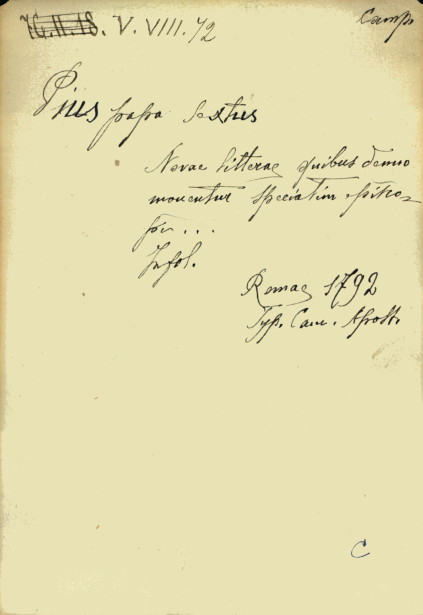 V. VIII. 72
Camp.
Pius papa Sextus
Novae litterae quibus denuo
monentur speciatim episco-
pi...
Infol.
Romae 1792
Typ. Cam. Apost.
C